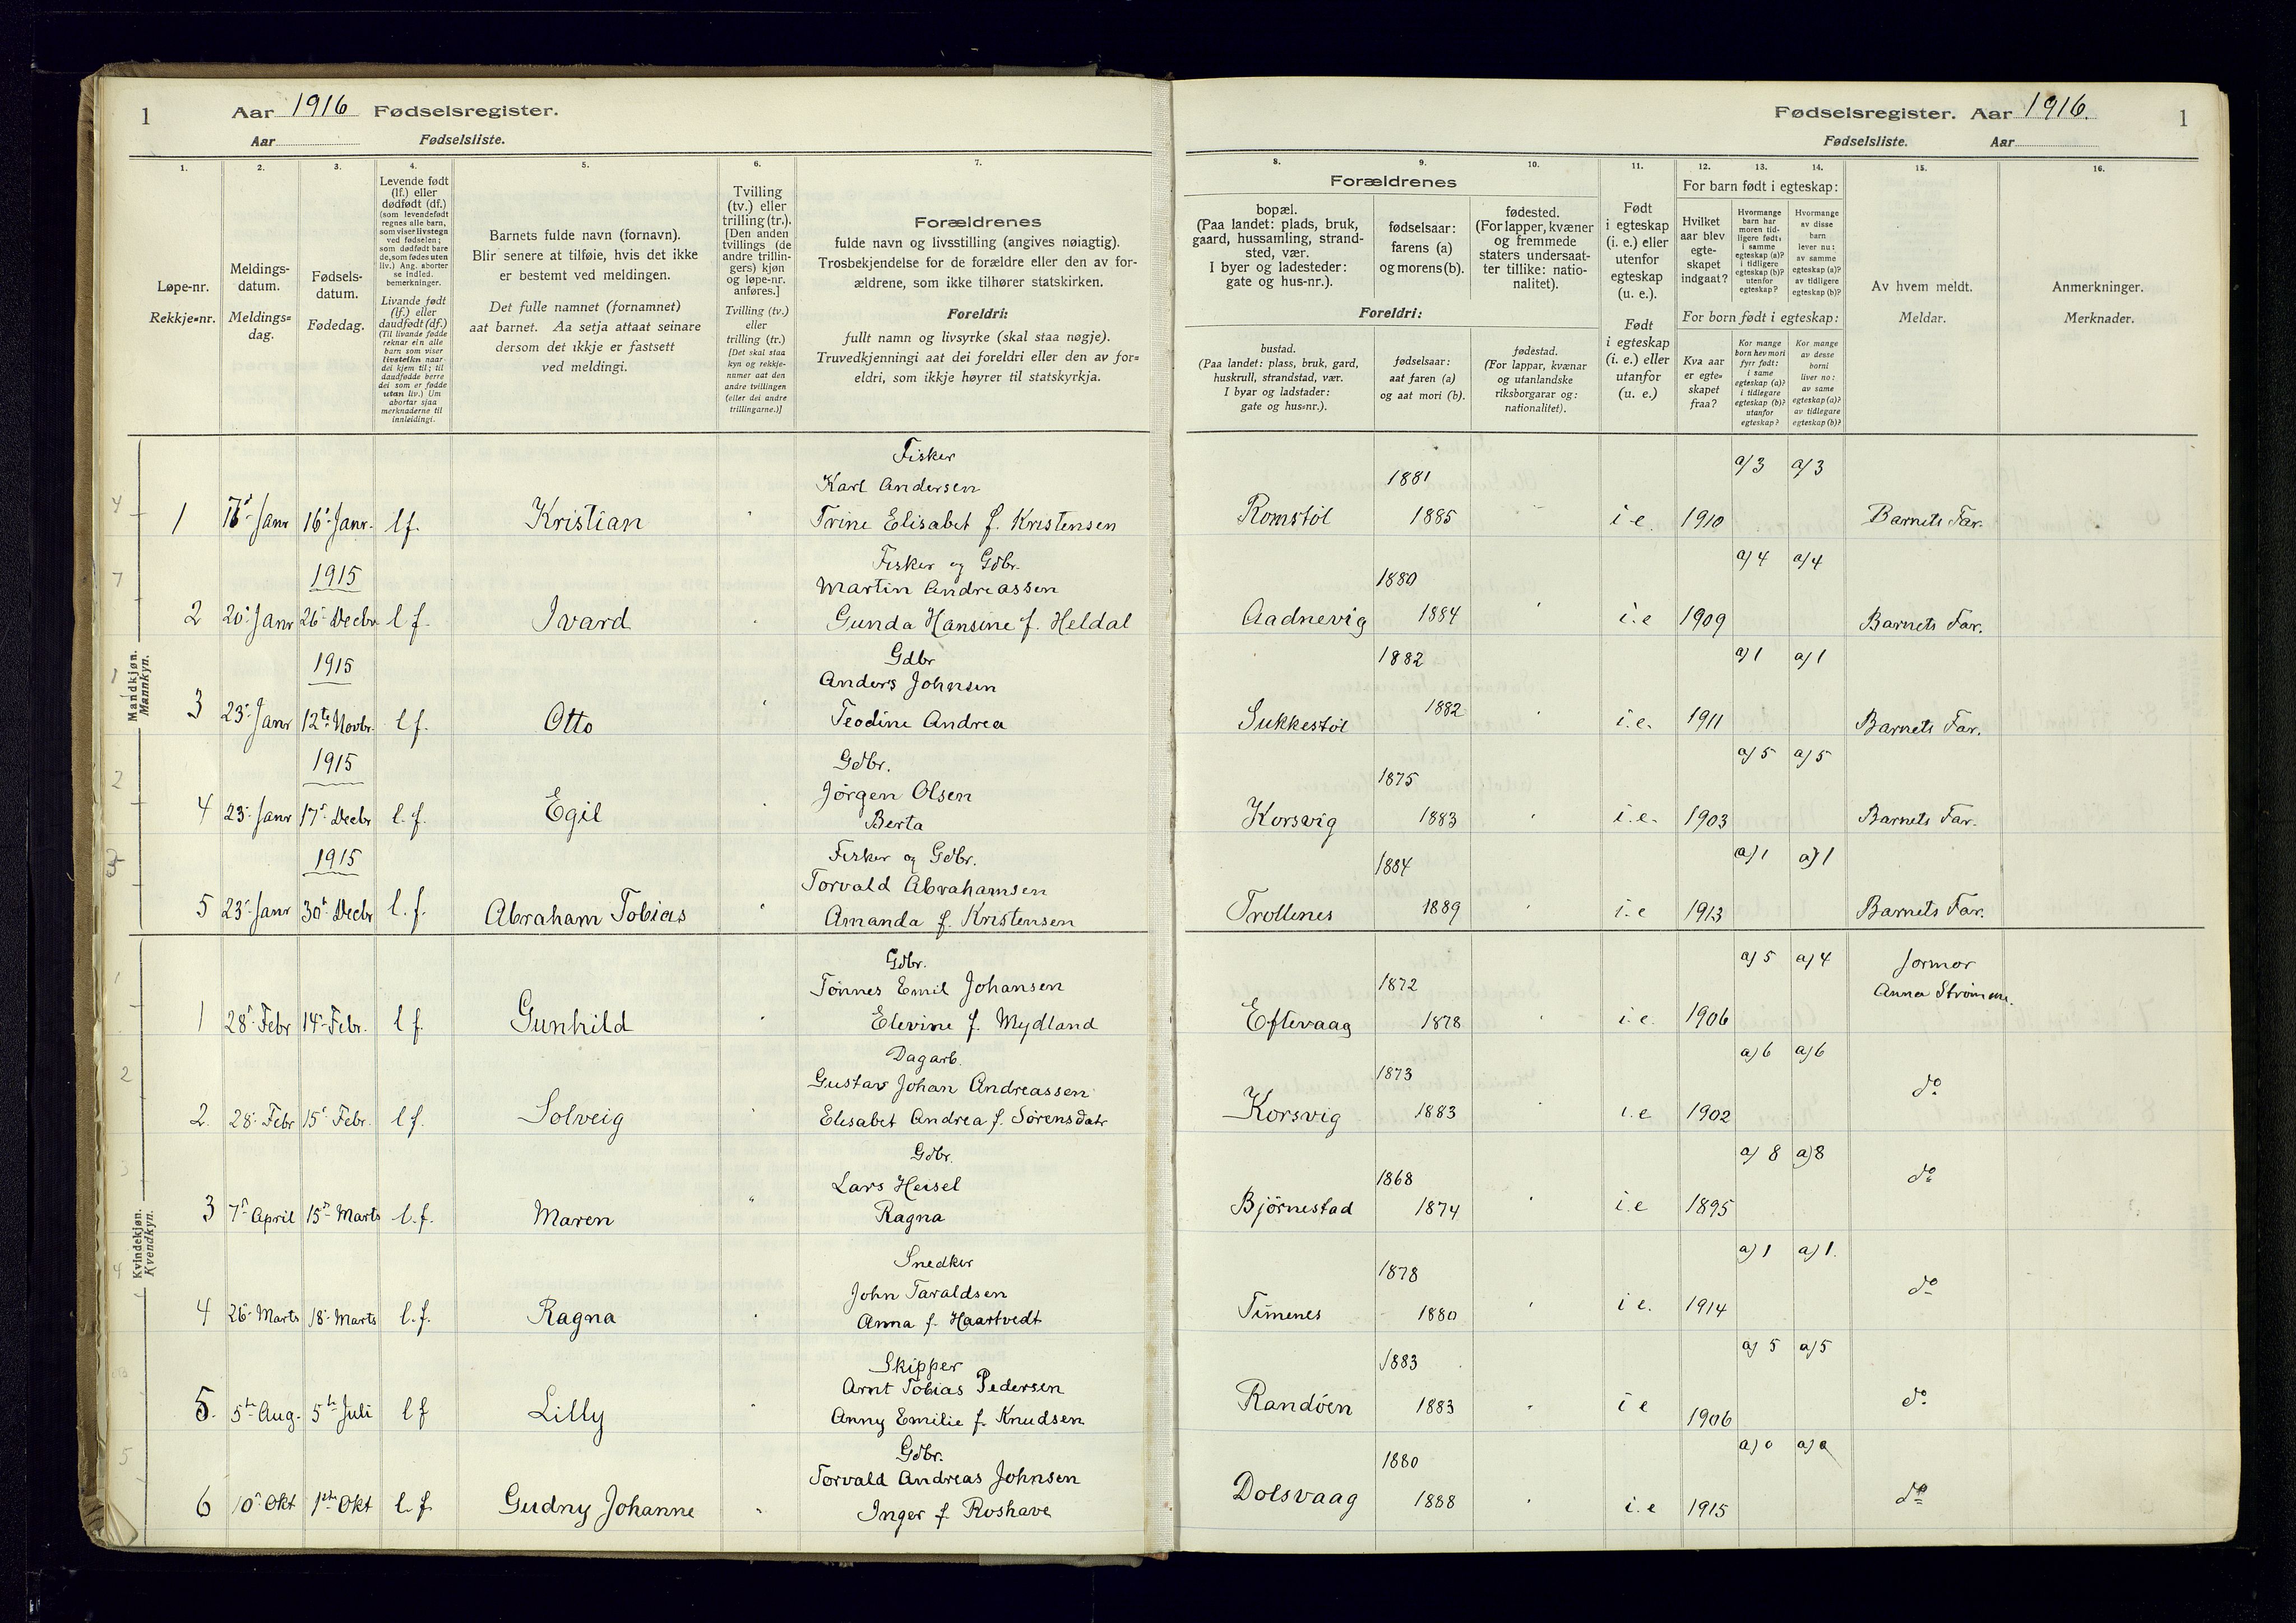 1
Aar 1916 Fødselsregister.
Aar Fødselsliste.
1.
2.
3.
4.
5.
6.
7.
Løpe-nr.
Rekkje=nr.
Meldings-
datum.
Meldings=
dag.
Fødsels-
datum.
Fødedag.
Levende født
(lf.) eller
dødfødt (df.)
(som levendefødt
regnes alle barn,
som viser livstegn
ved fødselen;
som dødfødt bare
de, som fødes uten
liv.) Ang. aborter
se indled.
bemerkninger.
Livande født
(lf.) eller
daudfødt (df.)
(Til livande fødde
reknar ein alle
barn som viser
livsteikn naar
dei kjem til; til
daudfødde berre
dei som er fødde
utan liv.) Um
abortar sjaa
merknaderne til
innleidingi.
Barnets fulde navn (fornavn).
Blir senere at tilføie, hvis det ikke
er bestemt ved meldingen.
Det fulle namnet (fornamnet)
aat barnet. Aa setja attaat seinare
dersom det ikkje er fastsett
ved meldingi.
Tvilling
(tv.) eller
trilling (tr.).
[Den anden
tvillings (de
andre trillin-
gers) kjøn
og løpe-nr.
anføres.]
Tvilling (tv.)
eller
trilling (tr.)
[Det skal staa
kyn og rekkje-
numer aat den
andre tvillingen
(eller dei andre
trillingarne.)]
Forældrenes
fulde navn og livsstilling (angives nøiagtig).
Trosbekjendelse for de forældre eller den av for-
ældrene, som ikke tilhører statskirken.
Foreldri:
fullt namn og livsyrke (skal staa nøgje).
Truvedkjenningi aat dei foreldri eller den av for=
eldri, som ikkje høyrer til statskyrkja.
Mandkjøn.
Mannkyn.
Fisker
Karl Andersen
1 16d Janr 16d Janr. lf. Kristian " Trine Elisabet f. Kristensen
1915
Fisker og Gdbr.
Martin Andreassen
2 20d Janr 26d Decbr l f. Ivard " Gunda Hansine f. Heldal
1915
Gdbr
Anders Johnsen
3 23d Janr 12te Novbr. l f. Otto " Teodine Andrea
1915
Gdbr.
Jørgen Olsen
4 23d Janr 17d Decbr l. f. Egil " Berta
1915
Fisker og Gdbr.
Torvald Abrahamsen
5 23d Janr 30d Decbr l. f. Abraham Tobias " Amanda f. Kristensen
Kvindekjøn.
Kvendkyn.
Gdbr.
Tønnes Emil Johansen
1 28d Febr 14d Febr. l f. Gunhild " Elevine f. Mydland
Dagarb.
Gustav Johan Andreassen
2. 28d Febr 15d Febr. l f. Solveig " Elisabet Andrea f. Sørensdatr
Gdbr.
Lars Heisel
3 7d April 15d Marts l. f. Maren " Ragna
Snedker
John Taraldsen
4 26d Marts 18d Marts l. f. Ragna " Anna f. Haartvedt
Skipper
Arnt Tobias Pedersen
5. 5te Aug. 5te Juli l f Lilly " Anny Emilie f. Knudsen
Gdbr.
Torvald Andreas Johnsen
6 10d Okt 1ste Okt l. f. Gudny Johanne " Inger f. Roshave
Fødselsregister. Aar 1916.
1
Fødselsliste. Aar
8.
9.
10.
11.
12.
13.
14.
15.
16.
Forældrenes
bopæl.
(Paa landet: plads, bruk,
gaard, hussamling, strand-
sted, vær.
I byer og ladesteder:
gate og hus-nr.).
fødselsaar:
farens (a)
og morens (b).
fødested.
(For lapper, kvæner
og fremmede
staters undersaat-
ter tillike: natio-
nalitet).
Foreldri:
bustad.
(Paa landet: plass, bruk, gard,
huskrull, strandstad, vær.
I byar og ladstader:
gate og hus=nr.).
fødselsaar:
aat faren (a)
og aat mori (b).
fødestad.
(For lappar, kvænar
og utanlandske
riksborgarar og:
nationalitet).
Født
i egteskap
(i. e.) eller
utenfor
egteskap
(u. e.).
Født
i egteskap
(i. e.) eller
utanfor
(u. e.)
For barn født i egteskap:
Hvilket
aar blev
egte-
skapet
indgaat?
Hvormange
barn har
moren tid-
ligere født:
i samme
egteskap (a)?
i tidligere
egteskap (b)?
utenfor
egteskap?
Hvormange
av disse
barn
lever nu:
av samme
egteskap (a)?
av tidligere
egteskap (b)?
For born født i egteskap:
Kva aar
er egte=
skapet
fraa?
Kor mange
born hev mori
fyrr født:
i same
egteskap (a)?
i tidlegare
egteskap (b)?
utanfor
egteskap?
Kor mange
av desse
borni
liver no:
av same
egteskap (a)?
av tidlegare
egteskap (b)?
Av hvem meldt.
Meldar.
Anmerkninger.
Merknader.
a/3 a/3
1881
Romstøl 1885 " i-e 1910 Barnets Far.
a/4 a/4
1880
Aadnevig 1884 " i.e 1909 Barnets Far.
1882 a/1 a/1
Sukkestøl 1882 " i.e. 1911 Barnets Far.
a/5 a/5
1875
Korsvig 1883 " i.e. 1903 Barnets Far.
a/1 a/1
1884
Trollenes 1889 i.e 1913 Barnets Far.
a/5 a/4 Jormor
1872 Anna Strømme.
Eftevaag 1878 " i.e. 1906
a/6 a/6
1873 do
Korsvig 1883 " i.e 1902
a/8 a/8
1868 do
Bjørnestad 1874 " i.e 1895
a/1 a/1.
1878 do
Timenes 1880 " i e. 1914
a/5 a/5
1883
Randøen 1883 " i e 1906 do
a/0 a/0
1880
Dolsvaag 1888 " i.e 1915 do